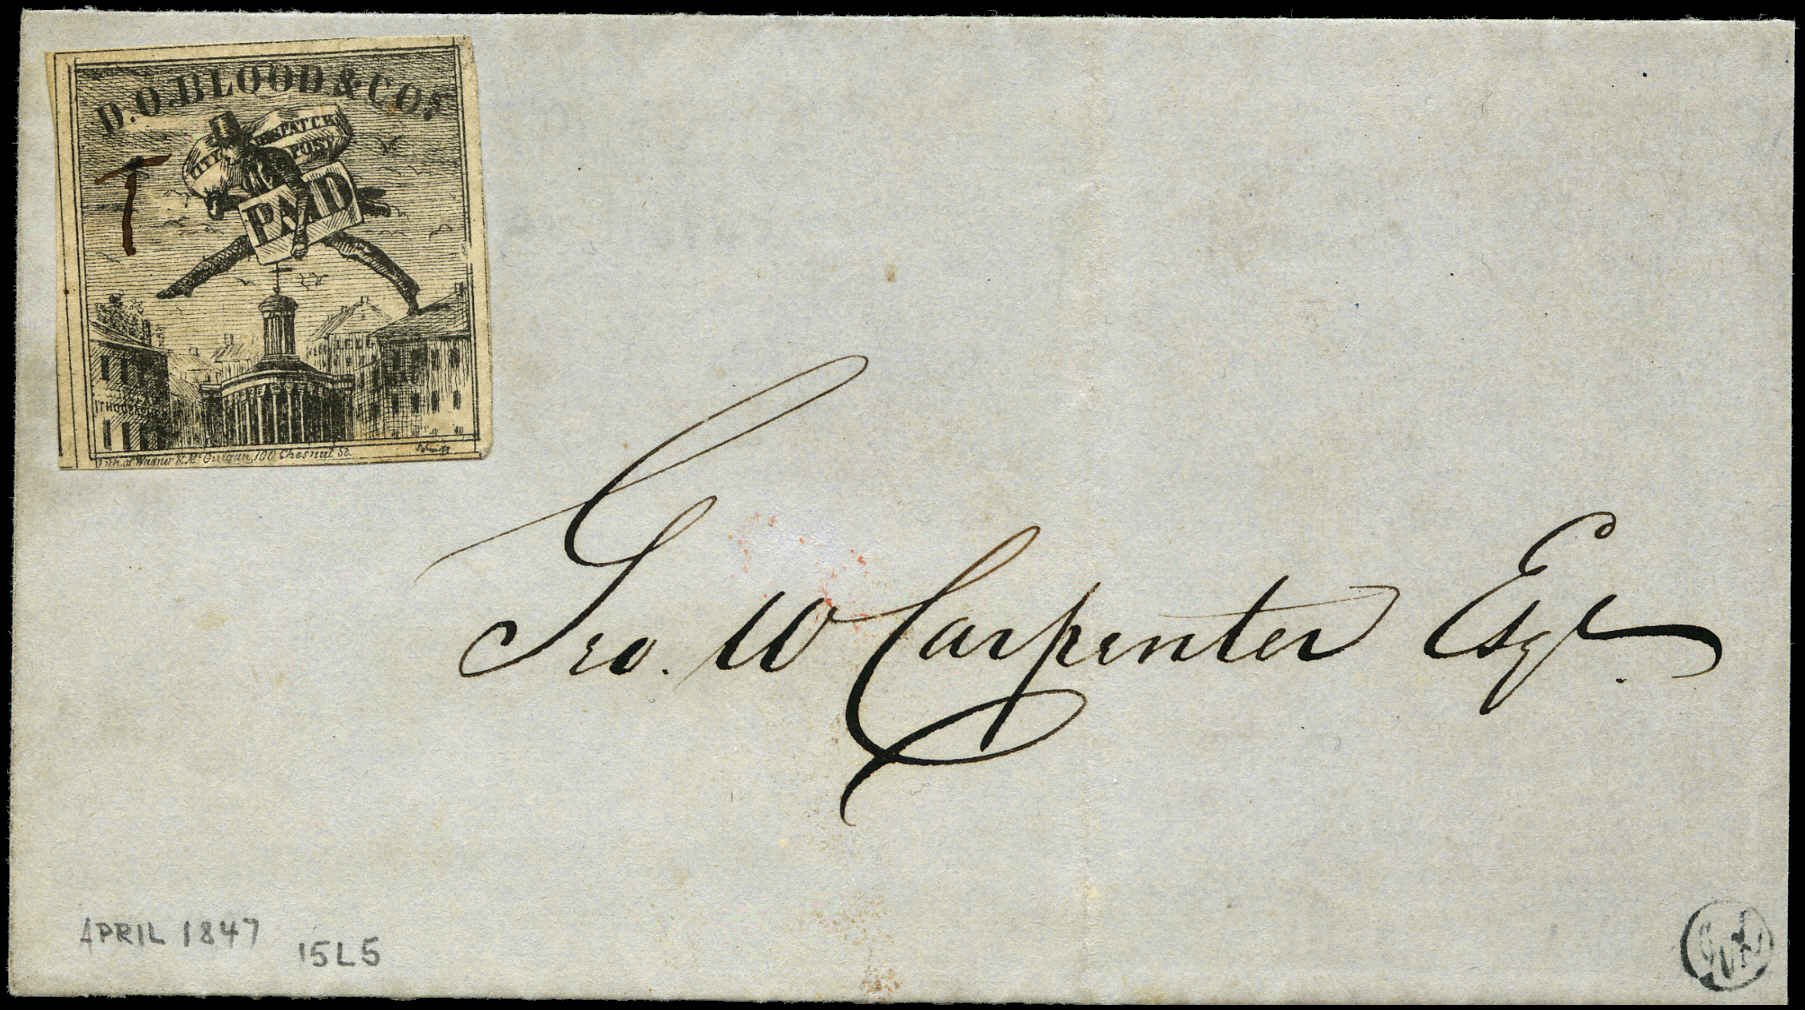 D.O.BLOOD & CO'S
CITY DESPATCH
POST
PAID
Lith. of Wagner & McGuigan, 100 Chesnut St.
Geo. W Carpenter Esqr
APRIL 1847
15L5